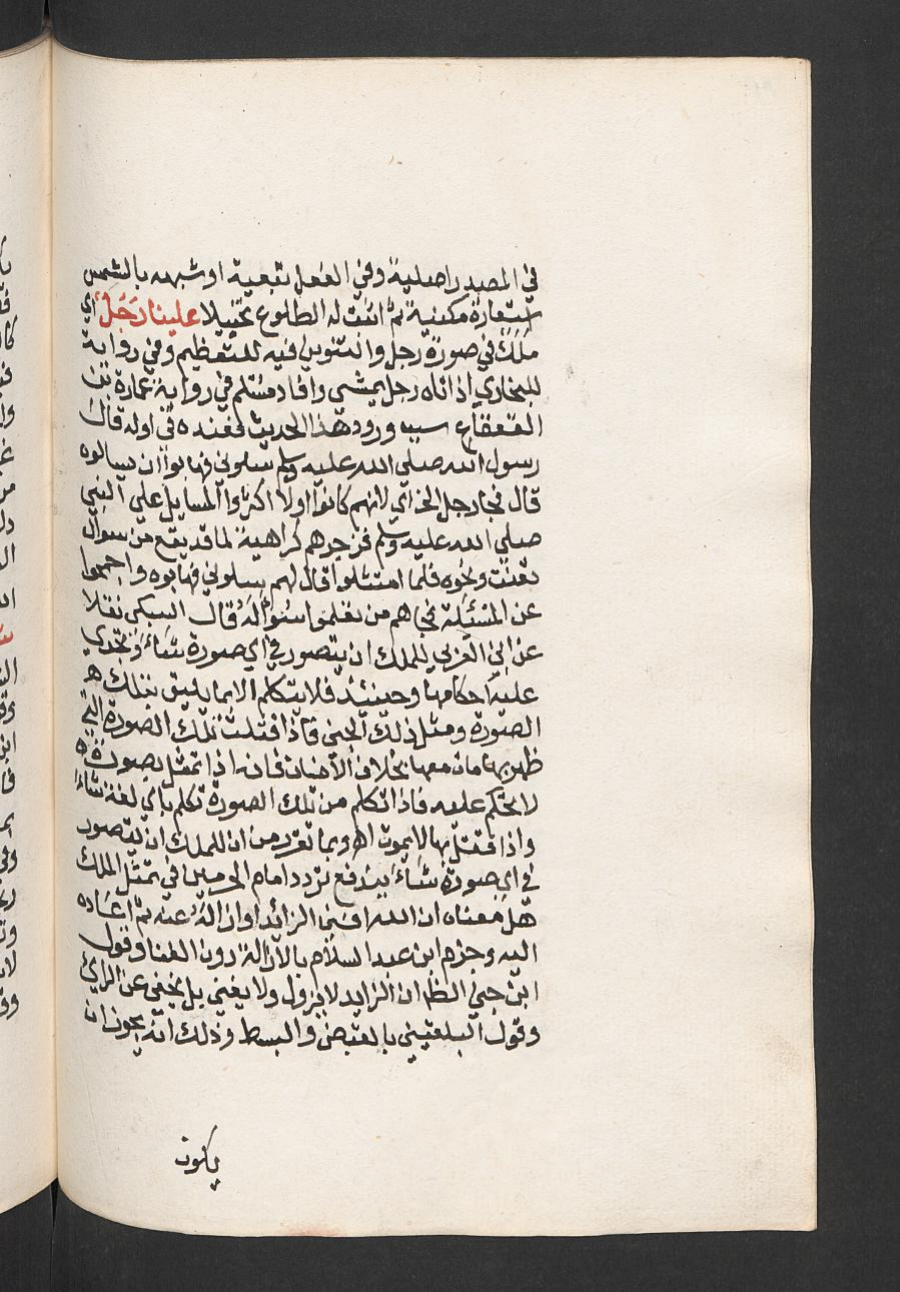 في المصدر اصلية وفي الفعل تبعية او شبهه بالشمس
استعارة مكنية ثم اثبت له الطلوع تخييلا علينا رجل اي
ملك في صورة رجل والتنوين فيه للتعظيم وفي رواية
للبخاري اذ اتاه رجل يمشي وافاد مسلم في رواية عمارة بن
القعقاع سبب ورود هذا الحديث فعنده في اوله قال
رسول الله صلي الله عليه وسلم سلوني فهابوا ان يسالوه
قال فجا رجل الخ اي لانهم كانوا اولا اكثروا المسايل علي النبي
صلي الله عليه وسلم فزجرهم كراهية لما قد يقع من سوال
تعنت ونحوه فلما امتثلوا قال لهم سلوني فهابوه واحجموا
عن المسئلة فجاهم من تعلموا سؤاله قال السبكي نقلا
عن ابن العربي للملك ان يتصور في اي صورة شاء وتجري
عليه احكامها وحينئذ فلا يتكلم الا بما يليق بتلك
الصورة ومثل ذلك الجني فاذا قتلت تلك الصورة التي
ظهر بها مات معها بخلاف الانسان فانه اذا تمثل بصورة
لا تحكم عليه فاذا تكلم من تلك الصورة تكلم باي لغة شاء
واذا قتل بها لا يموت اه وبما تقرر من ان للملك ان يتصور
في اي صورة شاء يندفع تردد امام الحرمين في تمثل الملك
هل معناه ان الله افني الزائد او ازاله عنه ثم اعاده
اليه وجزم ابن عبد السلام بالازالة دون الفنا وقول
ابن جني الظ ان الزايد لا يزول ولا يفني بل يخفي عن الرائي
وقول البلقيني بالقبض والبسط وذلك انه يجوز ان
يكون